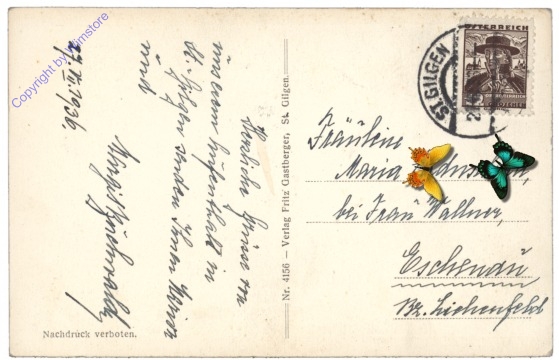 27. VII. 1936.
Herzliche Grüsse von
unserem Aufenthalt in
St. Gilgen senden Ihnen
und
Nachdruck verboten.
Nr. 4156 — Verlag Fritz Gastberger, St. Gilgen.
ÖSTERREICH
GROSCHEN
ST. GILGEN
Fräulein
Maria
bei Frau Wallner,
Eschenau
Bz. Lichenfeld
Copyright by aktimstore